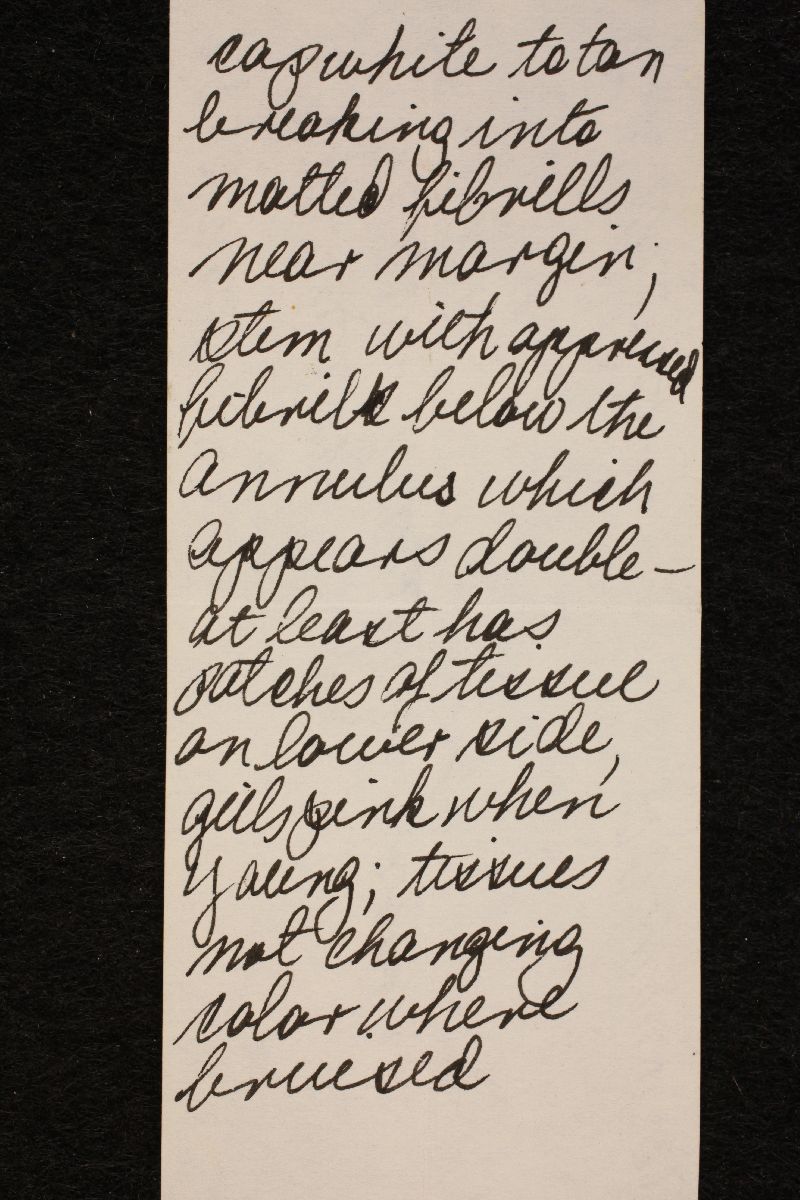 cap white to tan
breaking into
matted fibrills
near margin;
stem with appressed
fibrils below the
annulus which
appears double—
at least has
patches of tissue
on lower side,
gills pink when
young; tissues
not changing
color where
bruised